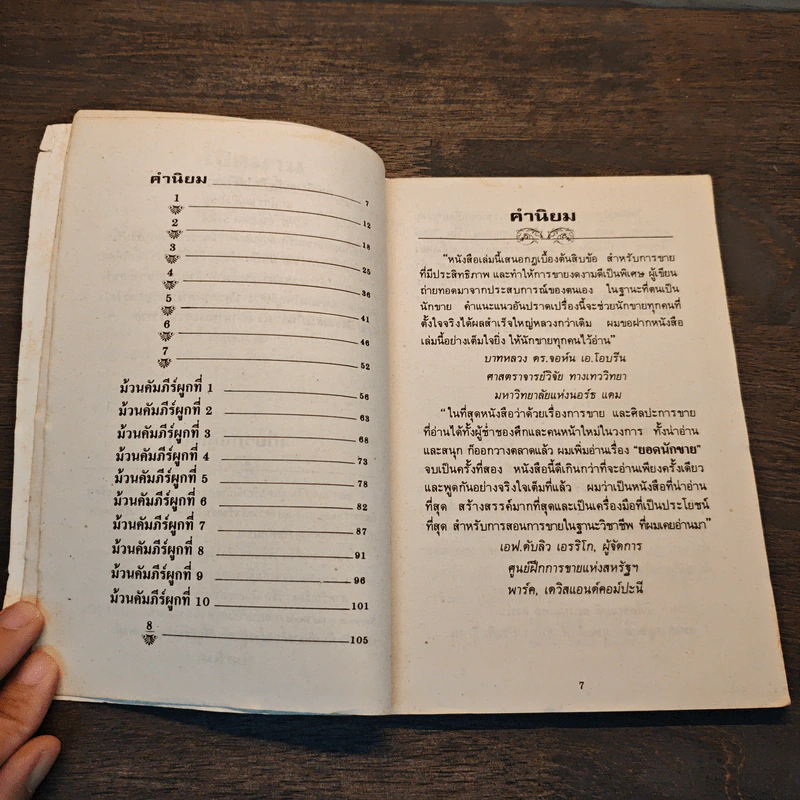 คำนิยม 7
1 12
2 18
3 25
4 36
5 41
6 46
7 52
ม้วนคัมภีร์ผูกที่ 1 56
ม้วนคัมภีร์ผูกที่ 2 63
ม้วนคัมภีร์ผูกที่ 3 68
ม้วนคัมภีร์ผูกที่ 4 73
ม้วนคัมภีร์ผูกที่ 5 78
ม้วนคัมภีร์ผูกที่ 6 82
ม้วนคัมภีร์ผูกที่ 7 87
ม้วนคัมภีร์ผูกที่ 8 91
ม้วนคัมภีร์ผูกที่ 9 96
ม้วนคัมภีร์ผูกที่ 10 101
8 105
คำนิยม
"หนังสือเล่มนี้เสนอกฎเบื้องต้นสิบข้อ สำหรับการขาย
ที่มีประสิทธิภาพ และทำให้การขายงดงามดีเป็นพิเศษ ผู้เขียน
ถ่ายทอดมาจากประสบการณ์ของตนเอง ในฐานะที่ตนเป็น
นักขาย คำแนะแนวอันปราดเปรื่องนี้จะช่วยนักขายทุกคนที่
ตั้งใจจริงได้ผลสำเร็จใหญ่หลวงกว่าเดิม ผมขอฝากหนังสือ
เล่มนี้อย่างเต็มใจยิ่ง ให้นักขายทุกคนไว้อ่าน"
บาทหลวง ดร.จอห์น เอ.โอบรีน
ศาสตราจารย์วิจัย ทางเทววิทยา
มหาวิทยาลัยแห่งนอร์ธ แดม
"ในที่สุดหนังสือว่าด้วยเรื่องการขาย และศิลปะการขาย
ที่อ่านได้ทั้งผู้ช่ำชองศึกและคนหน้าใหม่ในวงการ ทั้งน่าอ่าน
และสนุก ก็ออกวางตลาดแล้ว ผมเพิ่มอ่านเรื่อง "ยอดนักขาย"
จบเป็นครั้งที่สอง หนังสือนี้ดีเกินกว่าที่จะอ่านเพียงครั้งเดียว
และพูดกันอย่างจริงใจเต็มที่แล้ว ผมว่าเป็นหนังสือที่น่าอ่าน
ที่สุด สร้างสรรค์มากที่สุดและเป็นเครื่องมือที่เป็นประโยชน์
ที่สุด สำหรับการสอนการขายในฐานะวิชาชีพ ที่ผมเคยอ่านมา"
เอฟ.ดับลิว เอรริโก, ผู้จัดการ
ศูนย์ฝึกการขายแห่งสหรัฐฯ
พาร์ค, เดวิสแอนด์คอม์ปะนี
7